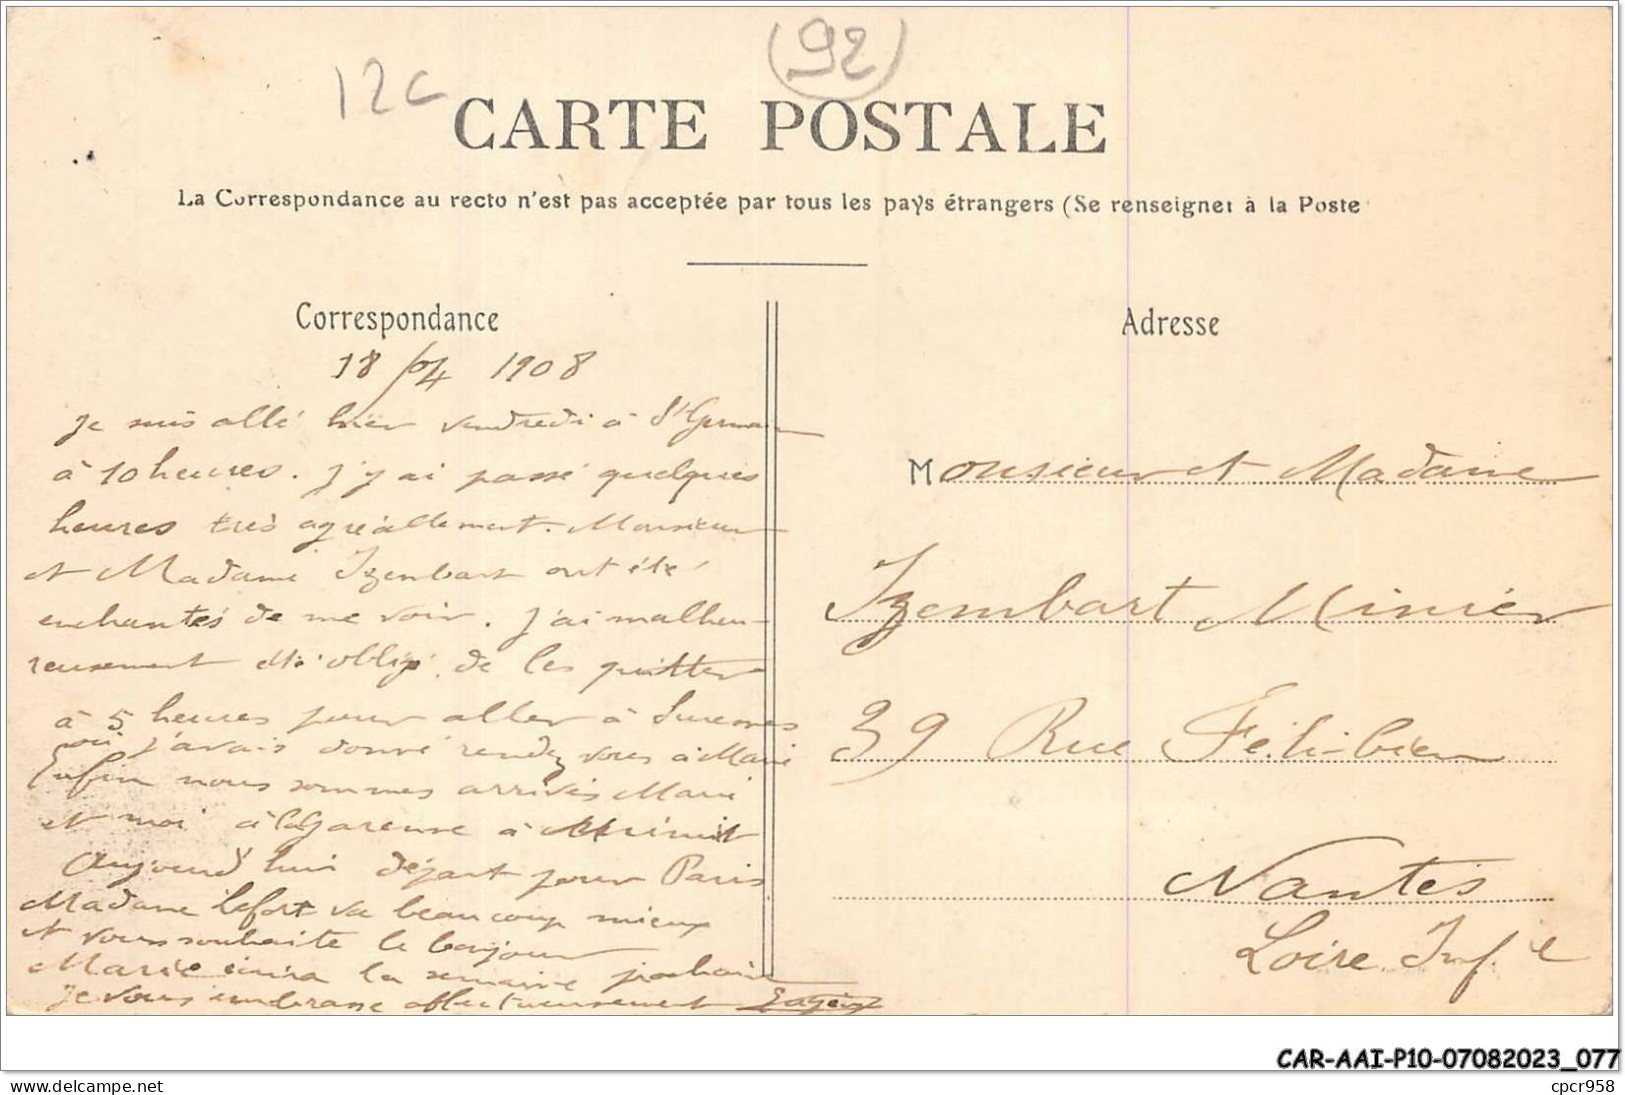 12c
(92)
CARTE POSTALE
La Correspondance au recto n'est pas acceptée par tous les pays étrangers (Se renseigner à la Poste
Correspondance
Adresse
18/04 1908
Je suis allé hier vendredi à St Germain
à 10 heures. J'y ai passé quelques
heures très agréablement. Monsieur
et Madame Izembart ont été
enchantés de me voir. J'ai malheu-
reusement été obligé de les quitter
à 5 heures pour aller à Suresnes
où j'avais donné rendez vous à Marie
Enfin nous sommes arrivés Marie
et moi à la Garenne à minuit
Aujourd'hui départ pour Paris
Madame Lefort va beaucoup mieux
et vous souhaite le bonjour
Marie la semaine prochaine
Je vous embrasse affectueusement
Monsieur et Madame
Izembart Minier
39 Rue Félibien
Nantes
Loire Infre
CAR-AAI-P10-07082023_077
https://www.delcampe.net
cpcr958